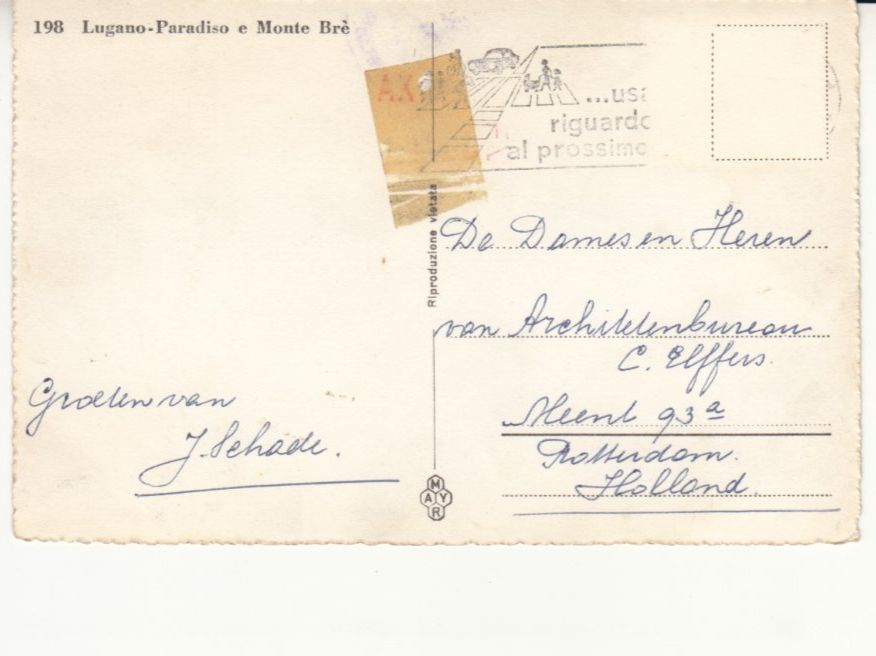 198 Lugano-Paradiso e Monte Brè
AX
...usa
riguardo
al prossimo
Riproduzione vietata
De Dames en Heren
van Architektenbureau
C. Elffers.
Meent 93a
Rotterdam.
Holland.
Groeten van
J. Schade.
MAYR